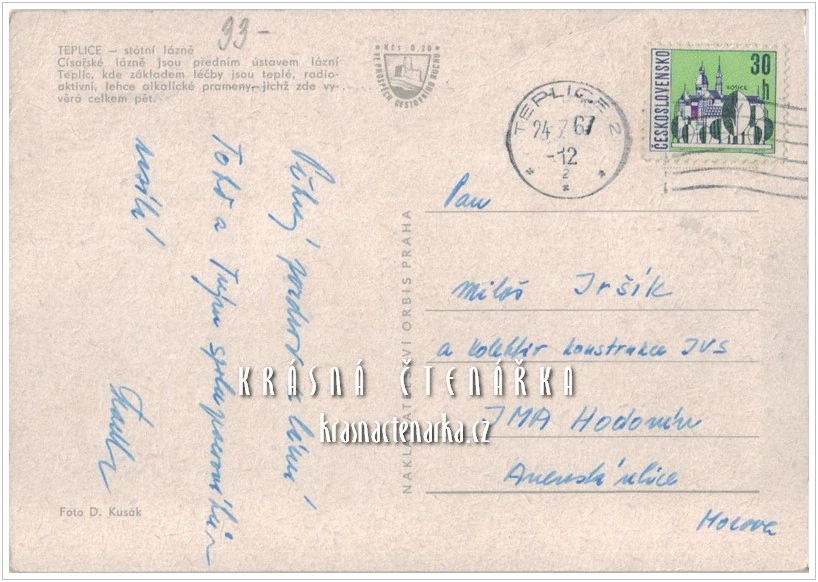 93-
TEPLICE — státní lázně
Císařské lázně jsou předním ústavem lázní
Teplic, kde základem léčby jsou teplé, radio-
aktivní, lehce alkalické prameny, jichž zde vy-
věrá celkem pět.
Kčs 0,20
VE PROSPĚCH CESTOVNÍHO RUCHU
TEPLICE 2
24.7.67
-12
2
ČESKOSLOVENSKO
30 h
KOŠICE
Pěkný pozdrav z lázní
Tobě a Tvým spolupracovníkům
Pan
Miloš Iršík
a kolektiv konstrukce JVS
JMA Hodonín
Anenská ulice
Morava
NAKLADATELSTVÍ ORBIS PRAHA
KRÁSNÁ ČTENÁŘKA
krasnactenarka.cz
Foto D. Kusák